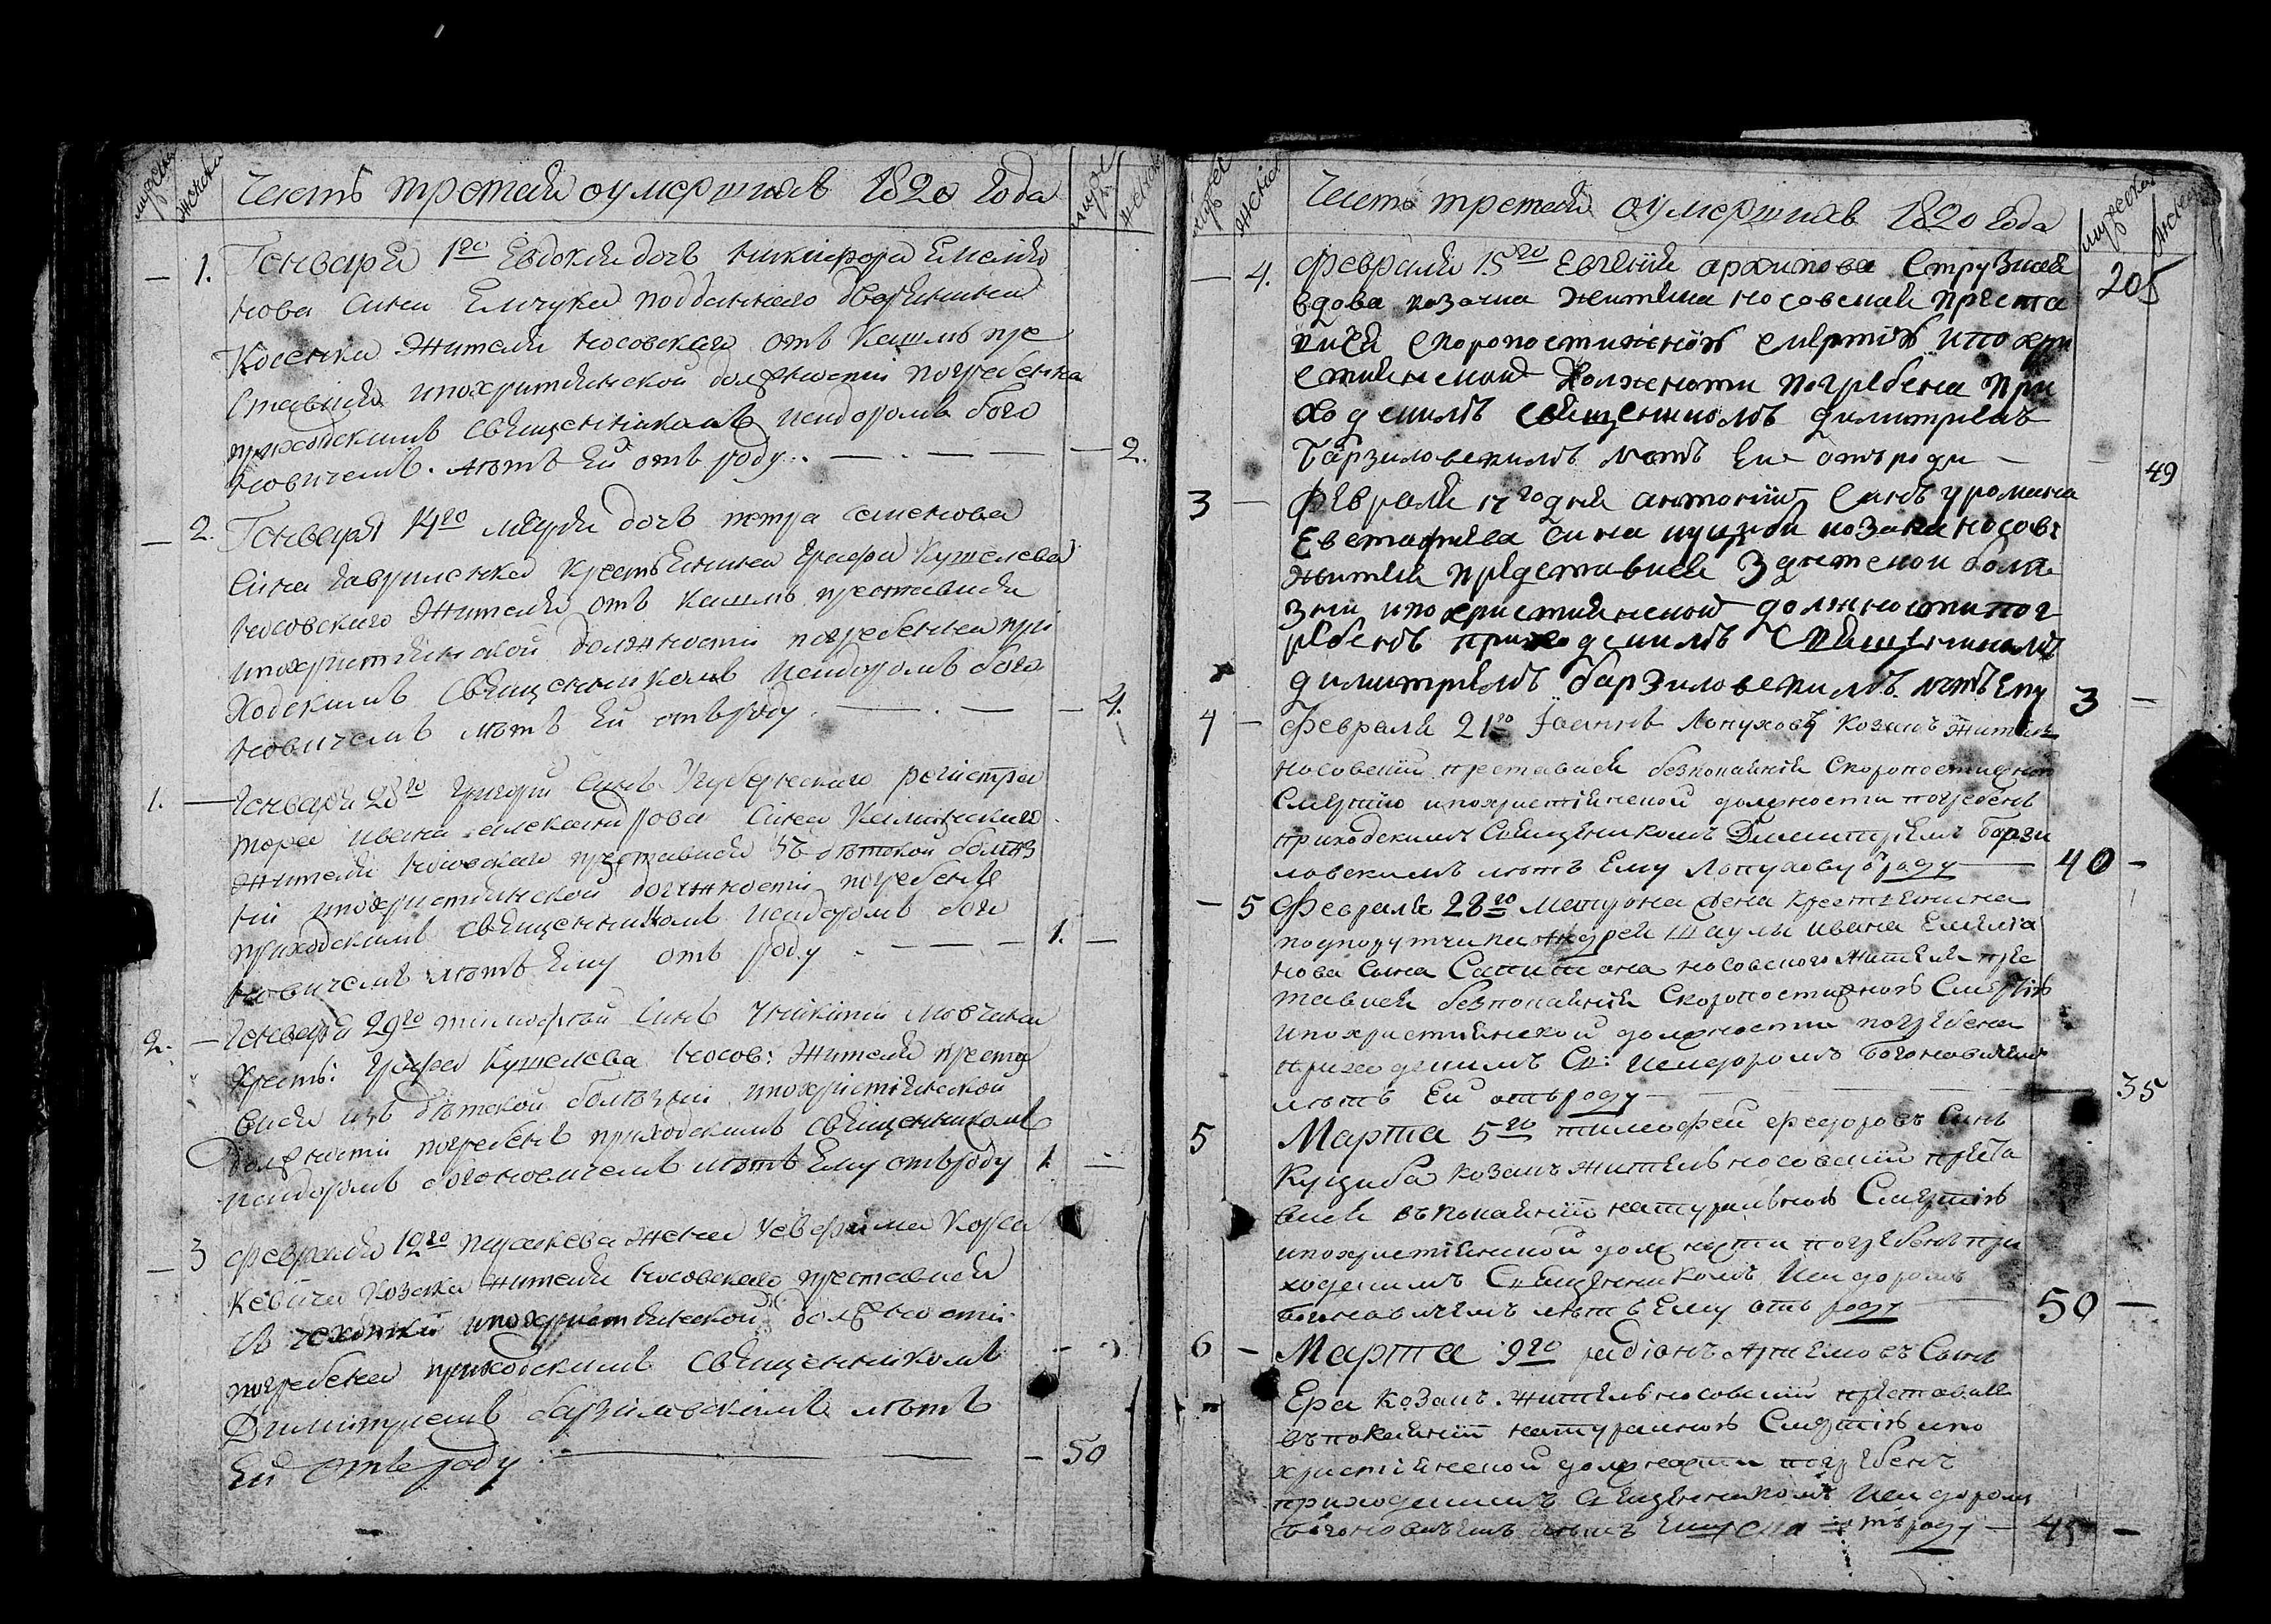 мужеска
женска
Часть третая оумершихъ 1820 Года
мужес
женск
1. Генваря 1го Евдокия дочъ никифора Емелия
нова сина Елчука подданнаго дворянина
Косенка жителя носовскаго отъ кашлъ пре
ставися ипохритиянской должности погребенна
приходскимъ священникомъ исидоромъ бого
новичемъ. лѣтъ Ей отъ роду. — 2.
2. Генваря 14го марѳа дочъ петра семенова
сина гаврилснка крестьянина Графа Кушелева
носовского жителя отъ кашлъ преставися
ипохристиянской должности погребенна при
ходскимъ священникомъ исидоромъ бого
новичемъ лѣтъ Ей отъ роду. — 4.
1. Генваря 28го григорій синъ губернского регистра
тора ивана александрова сина
жителя носовскаго преставися дѣтской болѣз
ній ипохристиянской должностій погребенъ
приходскимъ священникомъ исидоромъ бого
новичемъ лѣтъ Ему отъ роду — 1. —
2. Генваря 29го тимофей синъ никити мовчана
кресть: графа Кушелева носов: жителя преста
вися изъ дѣтской болѣзній ипохристіянской
должностій погребенъ приходскимъ священникомъ
исидоромъ богоновичемъ лѣтъ Ему отъ роду 1 —
3 февраля 12го параскева жена
кевича козака жителя носовскаго преставися
ипохристиянской должностій
погребена приходскимъ священникомъ
Димитриемъ барзиловскимъ лѣтъ
Ей отъ роду — 50
мужеска
женска
Часть третая оумершихъ 1820 Года
мужеска
женска
205
4. февраля 15го Евгенія архипова
вдова козачка жителка носовская преста
вися скоропостижною смертию ипохри
стиянской должности погребена при
ходскимъ священникомъ димитриемъ
барзиловскимъ лѣтъ Ей отъ роди — 49
3 февраля 17го дня антоній синъ романа
Евстафиева сина козака носовс
жителя представися дѣтской болѣ
зни ипохристиянской должности пог
ребенъ приходскимъ священникомъ
димитриемъ барзиловскимъ лѣтъ Ему 3 —
4 — февраля 21го Іоаннъ Лопуховъ козакъ житель
носовский преставися безпокаяния скоропостижною
смертию ипохристиянской должности погребенъ
приходскимъ священникомъ Димитриемъ барзи
ловскимъ лѣтъ Ему Лопухову роду — 40 —
5 февраля 28го матрона жена крестянина
подпорутчика ивана Емелия
нова сина носовского жителя пре
тавися безпокаяния скоропостижною смертию
ипохристиянской должности погребена
приходскимъ Св: исидоромъ богоновичемъ
лѣтъ Ей отъ роду — 35
5 Марта 5го тимофей федоровъ синъ
Куциба козакъ житель носовский преста
вися въпокаянии натуралною смертию
ипохристиянской должности погребенъ при
ходскимъ священникомъ исидоромъ
богоновичемъ лѣтъ Ему отъ роду 50 —
6 — Марта 9го радіонъ Артемовъ синъ
Ера козакъ житель носовский преставися
въпокаянии натуралною смертию ипо
християнской должности погребенъ
приходскимъ священникомъ исидоромъ
богоновичемъ лѣтъ Ему отъ роду — 45 —